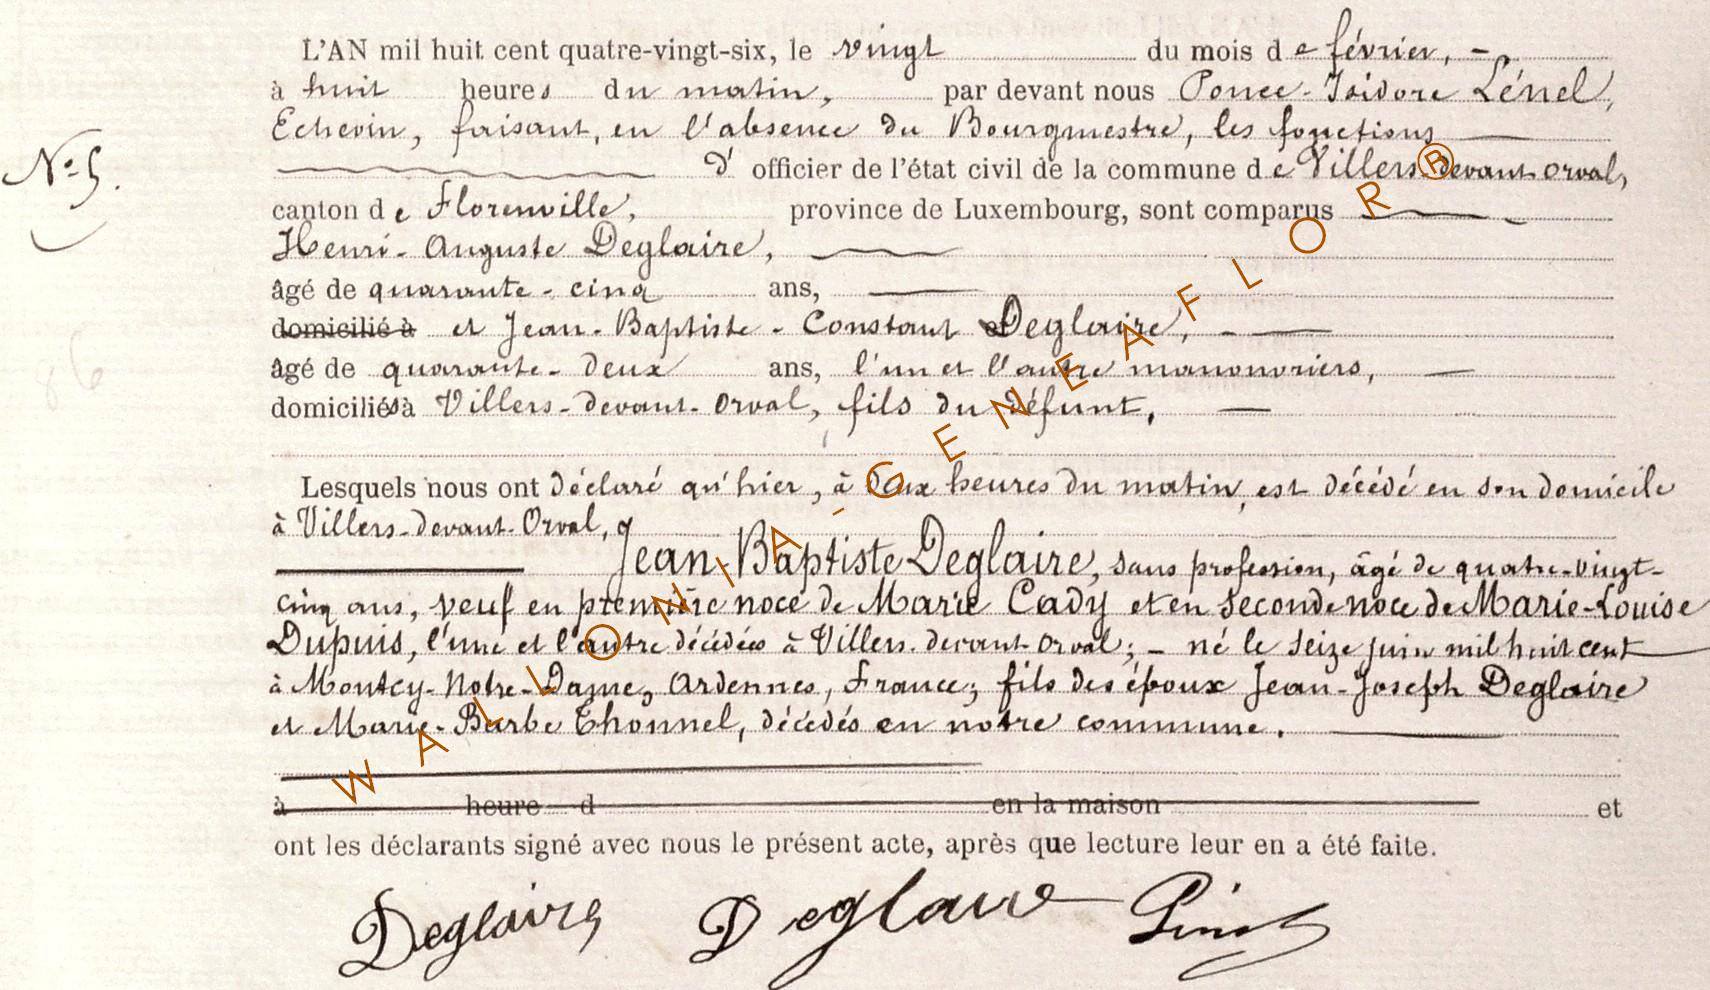 L'AN mil huit cent quatre-vingt-six, le vingt du mois de février, -
à huit heures du matin, par devant nous Ponce-Isidore Lénel,
Echevin, faisant, en l'absence du Bourgmestre, les fonctions
N° 5. d'officier de l'état civil de la commune de Villers-devant-Orval,
canton de Florenville, province de Luxembourg, sont comparus
Henri-Auguste Deglaire,
âgé de quarante-cinq ans,
domicilié à et Jean-Baptiste-Constant Deglaire, -
âgé de quarante-deux ans, l'un et l'autre manouvriers,
86
domiciliés à Villers-devant-Orval, fils du défunt,
Lesquels nous ont déclaré qu'hier, à deux heures du matin, est décédé en son domicile
à Villers-devant-Orval,
Jean-Baptiste Deglaire, sans profession, âgé de quatre-vingt-
cinq ans, veuf en première noce de Marie Cady et en seconde noce de Marie-Louise
Dupuis, l'une et l'autre décédées à Villers-devant-Orval; - né le seize juin mil huit cent
à Montcy-Notre-Dame, Ardennes, France; fils des époux Jean-Joseph Deglaire
et Marie-Barbe Thonnel, décédés en notre commune.
à heure d en la maison et
ont les déclarants signé avec nous le présent acte, après que lecture leur en a été faite.
Deglaire Deglaire
WALLONIA-GENEAFLOR®